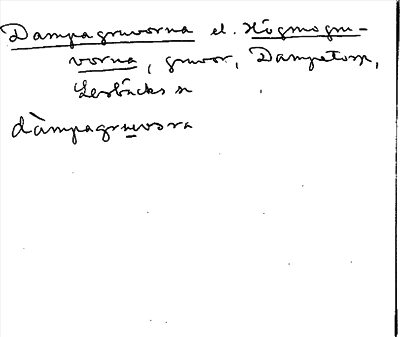 Dampagruvorna el. Högmogru-
vorna, gruvor, Dampetorp,
Lerbäcks sn
dàmpagruvora